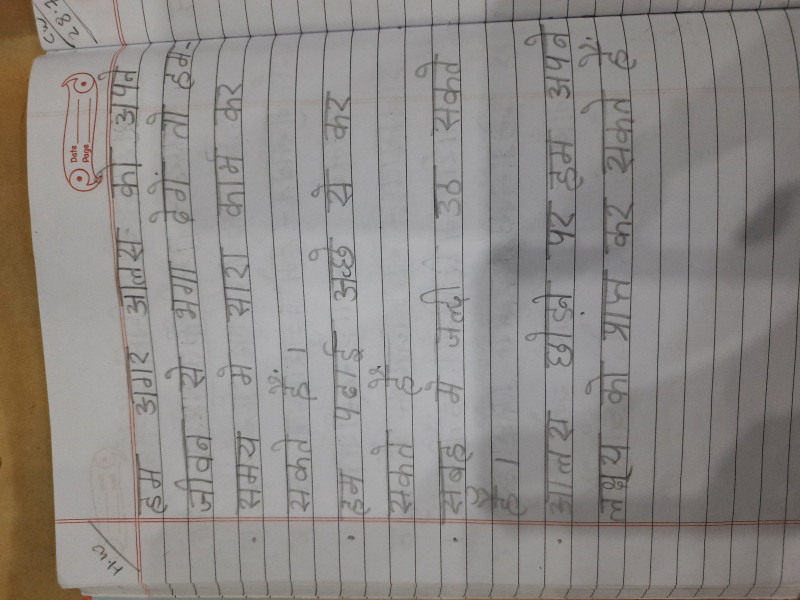 C.W
28.
H.W
Date
Page
हम अगर आलस को अपने
जीवन से भगा देगें तो हम-
• समय मे सारा काम कर
सकते हैं।
• हम पढाई अच्छे से कर
सकते हैं
• सबह मे जल्दी उठ सकते
हैं।
• आलस छोड़ने पर हम अपने
लक्ष्य को प्राप्त कर सकते हैं